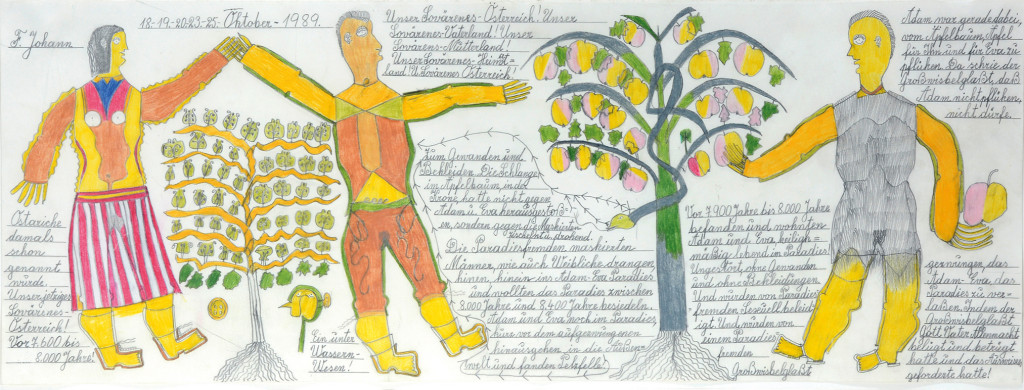 18-19-20.23-25. Oktober-1989.
F. Johann
Unser Sovärenes-Österreich! Unser
Sovärenes-Vaterland! Unser
Sovärens-Mutterland!
Unser Sovärenes-Heimt=
land! U. Sovärenes Österreich!
Adam war gerade dabei,
vom Apfelbaum, Apfel
für Ihn und für Eva zu
pflücken. Da schrie der
Großwisbelglaßt, daß
Adam nicht pflüken,
nicht dürfe.
Ostariche
damals
schon
genannt
wurde.
Unser jetziges
Sovärenes-
Österreich!
Vor 7.600. bis
8.000 Jahre!
Ein unter
Wassern-
Wesen!
Zum Gewanden und
Bekleiden. Die Schlange
im Apfelbaum, in da
Krone, hatte nicht gegen
Adam u. Eva herausgestoß=
en, sondern gegen die Maskierten
zischend u. drohend.
Die Paradiesfremden maskierten
Männer, wie auch Weibliche drangen
hinen, hinein ins Adam Eva Paradies
und wollten dies Paradies zwischen
8.000 Jahre und 8.400 Jahre besiedeln.
Adam und Eva noch im Paradies,
hier vor dem aufgezwungenen
hinausgehen in die Außen=
Welt und fanden Petzfelle!
Vor 7.900 Jahre bis 8.000 Jahre
befanden und wohnten
Adam und Eva heilig=
mäßig lebend im Paradies
Ungestört, ohne Gewanden
und ohne Bekleidungen
Und wurden von Paradies
fremden Sexuell beleid=
igt. Und wurden von
einem Paradies
fremden
Großwisbelglaßt
gezwungen, das
Adam-Eva, das
Paradies zu ver=
laßen. Indem der
Großwisbelglaßt
Gott Vater Allmächt
belügt und betrogt
hatte und das
geforderte hatte!